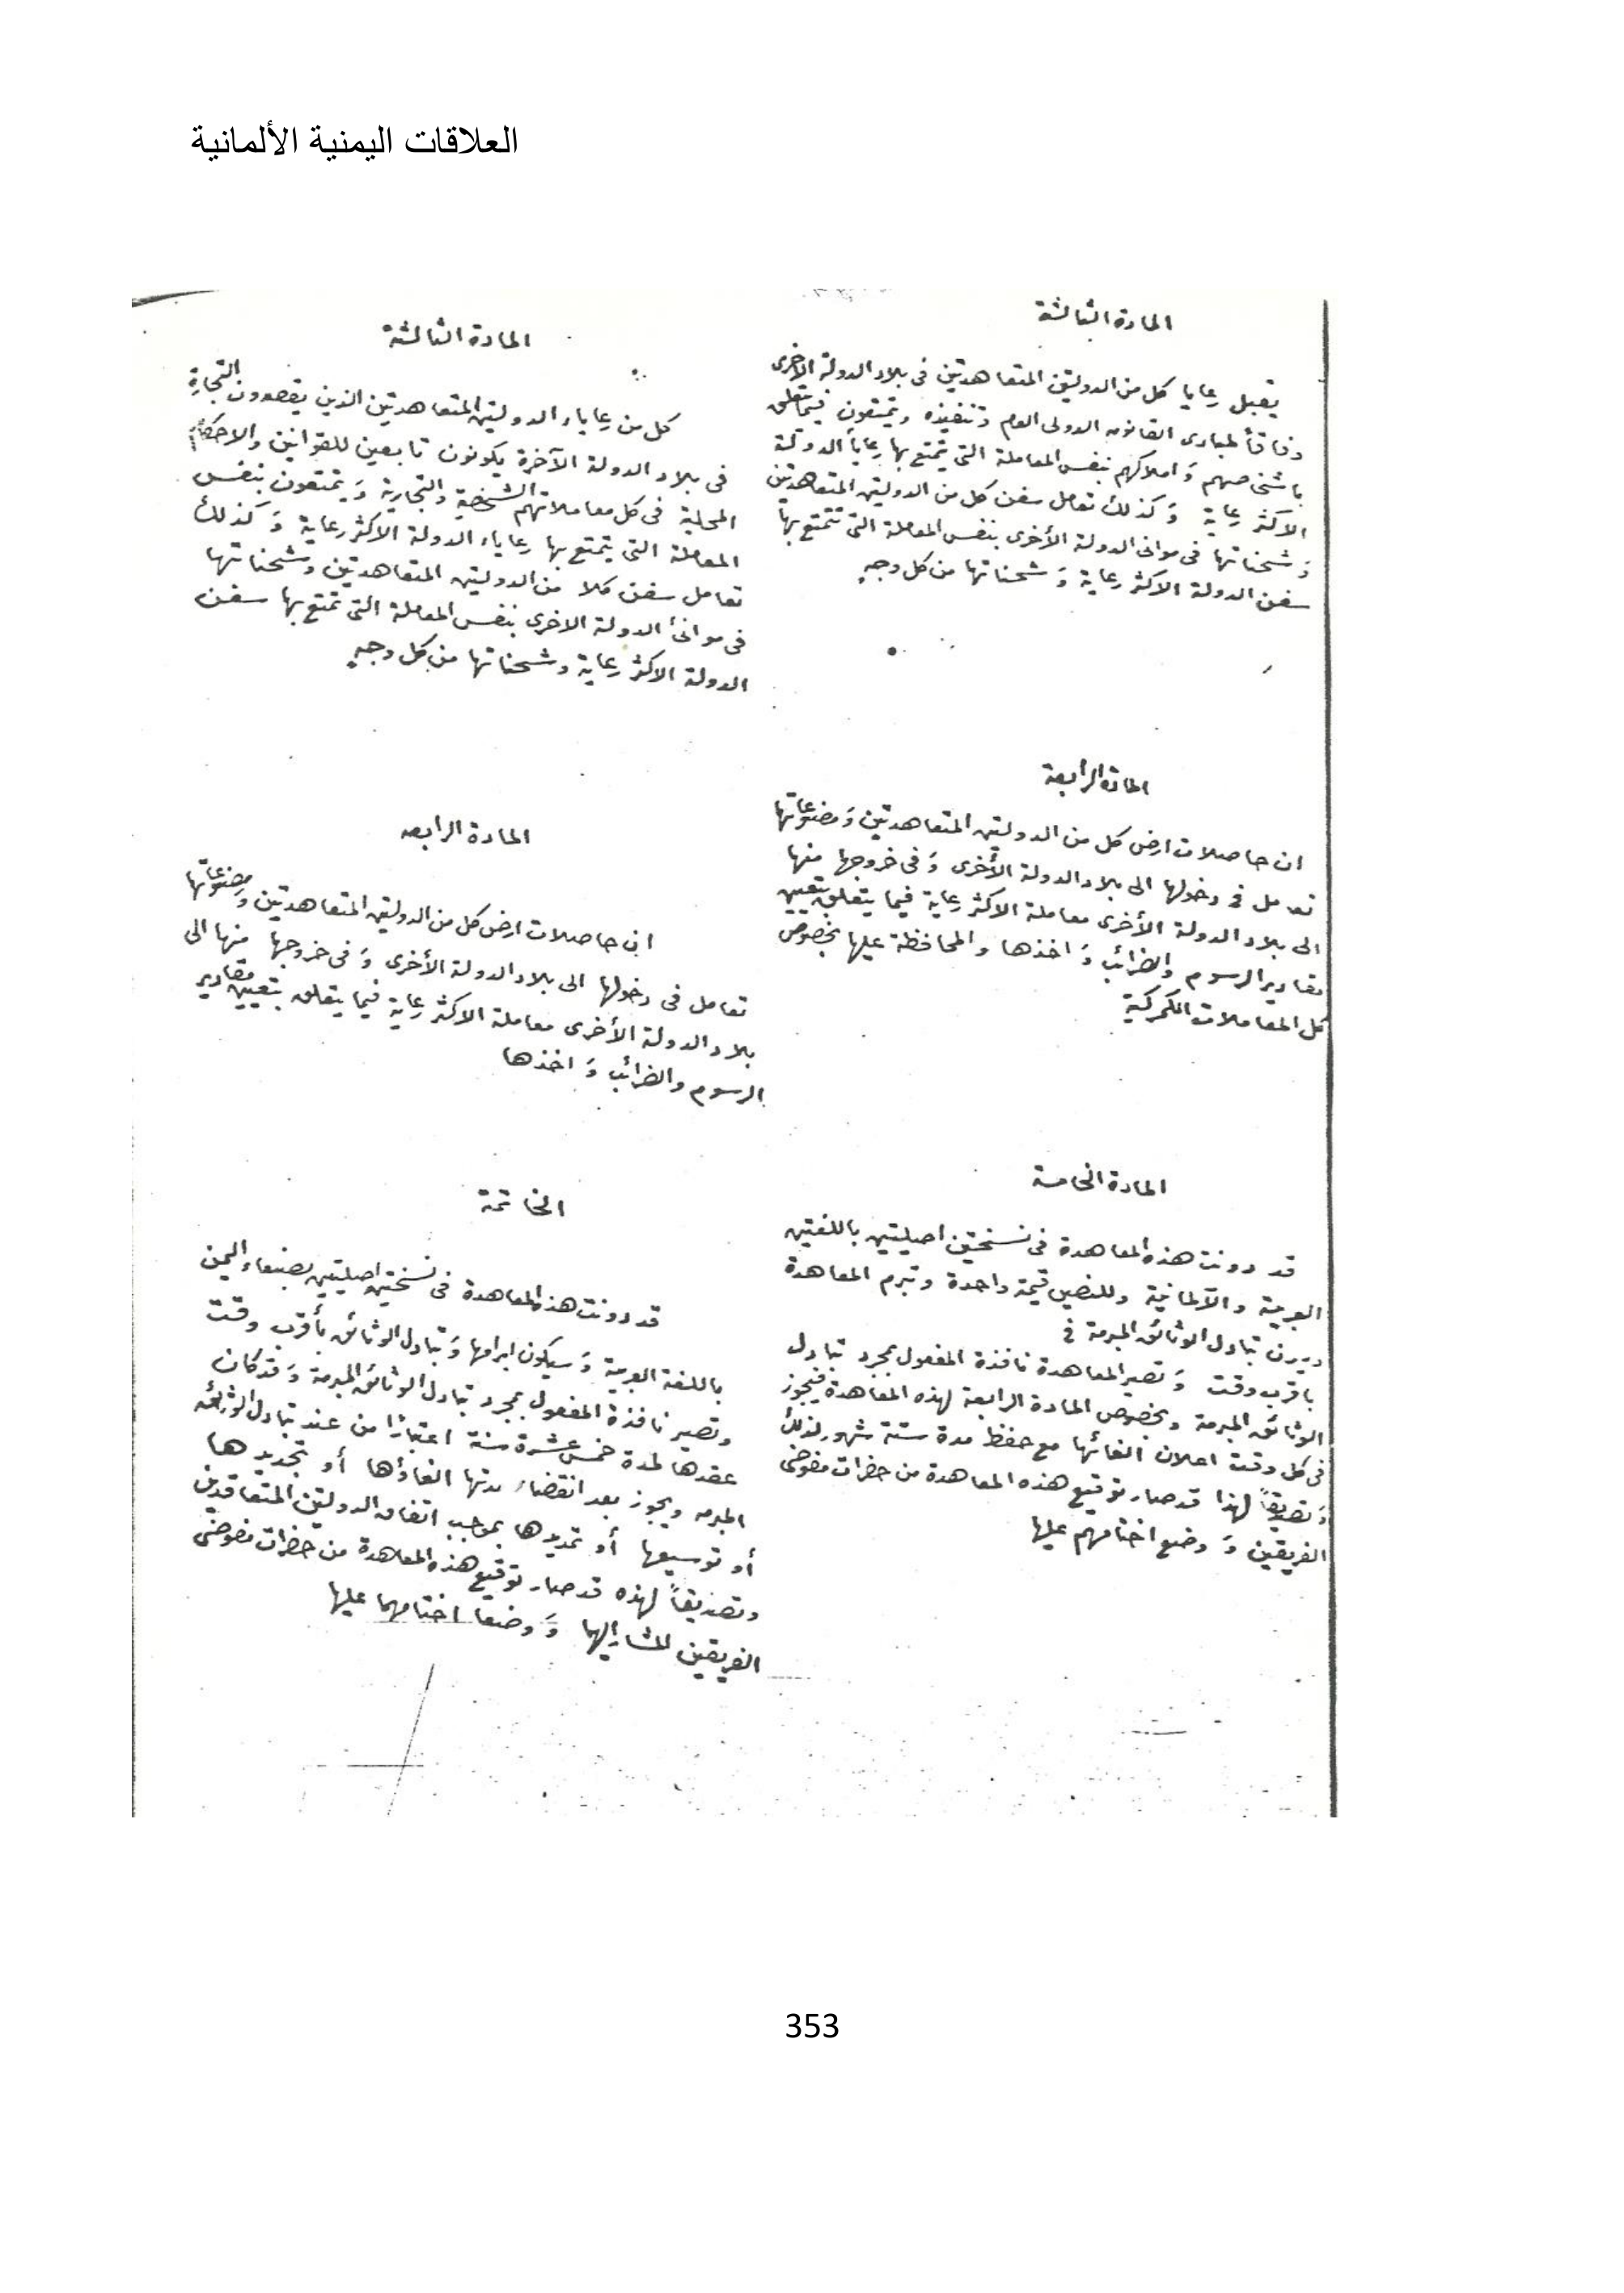 العلاقات اليمنية الألمانية
المادة الثالثة
يقبل رعايا كل من الدولتين المتعاهدتين في بلاد الدولة الأخرى
وفاقاً لمبادى القانون الدولى العام وتنفيذه ويتمتعون فيما يتعلق
باشخاصهم وَ املاكهم بنفس المعاملة التى يتمتع بها رعايا الدولة
الاكثر رعاية وَ كذلك تعامل سفن كل من الدولتين المتعاهدتين
وَ شحناتها فى موانى الدولة الأخرى بنفس المعاملة التى تتمتع بها
سفن الدولة الاكثر رعاية وَ شحناتها من كل وجهٍ
المادة الرابعة
ان حاصلات ارض كل من الدولتين المتعاهدتين وَ مصنوعاتها
تعامل فى دخولها الى بلاد الدولة الأخرى وَ فى خروجها منها
الى بلاد الدولة الأخرى معاملة الاكثر رعاية فيما يتعلق بتعيين
مقادير الرسوم والضرائب وَ اخذها والمحافظة عليها بخصوص
كل المعاملات الكمركية
المادة الخامسة
قد دونت هذه المعاهدة فى نسختين اصيلتين باللغتين
العربية والآلمانية وللنصين قيمة واحدة وتبرم المعاهدة
تبادل الوثائق المبرمة فى
باقرب وقت وَ تصير المعاهدة نافذة المفعول بمجرد تبادل
الوثائق المبرمة وبخصوص المادة الرابعة لهذه المعاهدة فيجوز
فى كل وقت اعلان الغائها مع حفظ مدة ستة شهور لذلك
وَ تصديقاً لهذا قد صار توقيع هذه المعاهدة من حضرات مفوضى
الفريقين وَ وضع اختامهم عليها
المادة الثالثة
كل من رعاياء الدولتين المتعاهدتين الذين يقصدون التجارة
فى بلاد الدولة الآخرة يكونون تابعين للقوانين والاحكام
المحلية فى كل معاملاتهم الشخصية والتجارية وَ يتمتعون بنفس
المعاملة التى يتمتع بها رعاياء الدولة الاكثر رعاية وَ كذلك
تعامل سفن كلا من الدولتين المتعاهدتين وشحناتها
فى موانئ الدولة الاخرى بنفس المعاملة التى تمتع بها سفن
الدولة الاكثر رعاية وشحناتها من كل وجهٍ
المادة الرابعه
ان حاصلات ارض كل من الدولتين المتعاهدتين وَ مصنوعاتها
تعامل فى دخولها الى بلاد الدولة الأخرى وَ فى خروجها منها الى
بلاد الدولة الأخرى معاملة الاكثر رعاية فيما يتعلق بتعيين مقادير
الرسوم والضرائب وَ اخذها
الخاتمة
قد دونت هذه المعاهدة فى نسختين اصيلتين بصنعاء اليمن
باللغة العربية وَ سيكون ابرامها وَ تبادل الوثائق بأقرب وقت
وتصير نافذة المفعول بمجرد تبادل الوثائق المبرمة وَ قد كان
عقدها لمدة خمس عشرة سنة اعتبارًا من عند تبادل الوثائق
المبرمه ويجوز بعد انقضاء مدتها الغاؤها أو تجديدها
أو توسيعها أو تمديدها بموجب اتفاق الدولتين المتعاقدين
وتصديقاً لهذه قد صار توقيع هذه المعاهدة من حضرات مفوضى
الفريقين المشار إليهما وَ وضعا اختامهما عليها
353